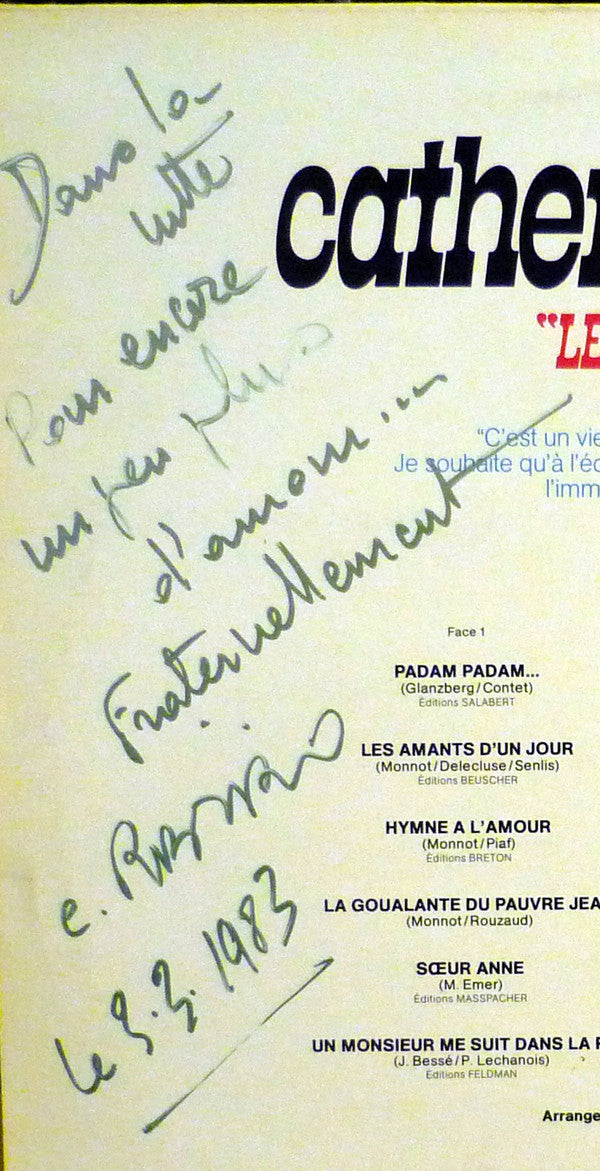 Dans la
lutte
Pour encore
un peu plus
d'amour...
Fraternellement
C. Ribeiro
le 3.3.1983
cathe
"LE
"C'est un vie
Je souhaite qu'à l'éc
l'imm
Face 1
PADAM PADAM...
(Glanzberg/Contet)
Éditions SALABERT
LES AMANTS D'UN JOUR
(Monnot/Delecluse/Senlis)
Éditions BEUSCHER
HYMNE A L'AMOUR
(Monnot/Piaf)
Éditions BRETON
LA GOUALANTE DU PAUVRE JEA
(Monnot/Rouzaud)
SŒUR ANNE
(M. Emer)
Éditions MASSPACHER
UN MONSIEUR ME SUIT DANS LA R
(J. Bessé/P. Lechanois)
Éditions FELDMAN
Arrange